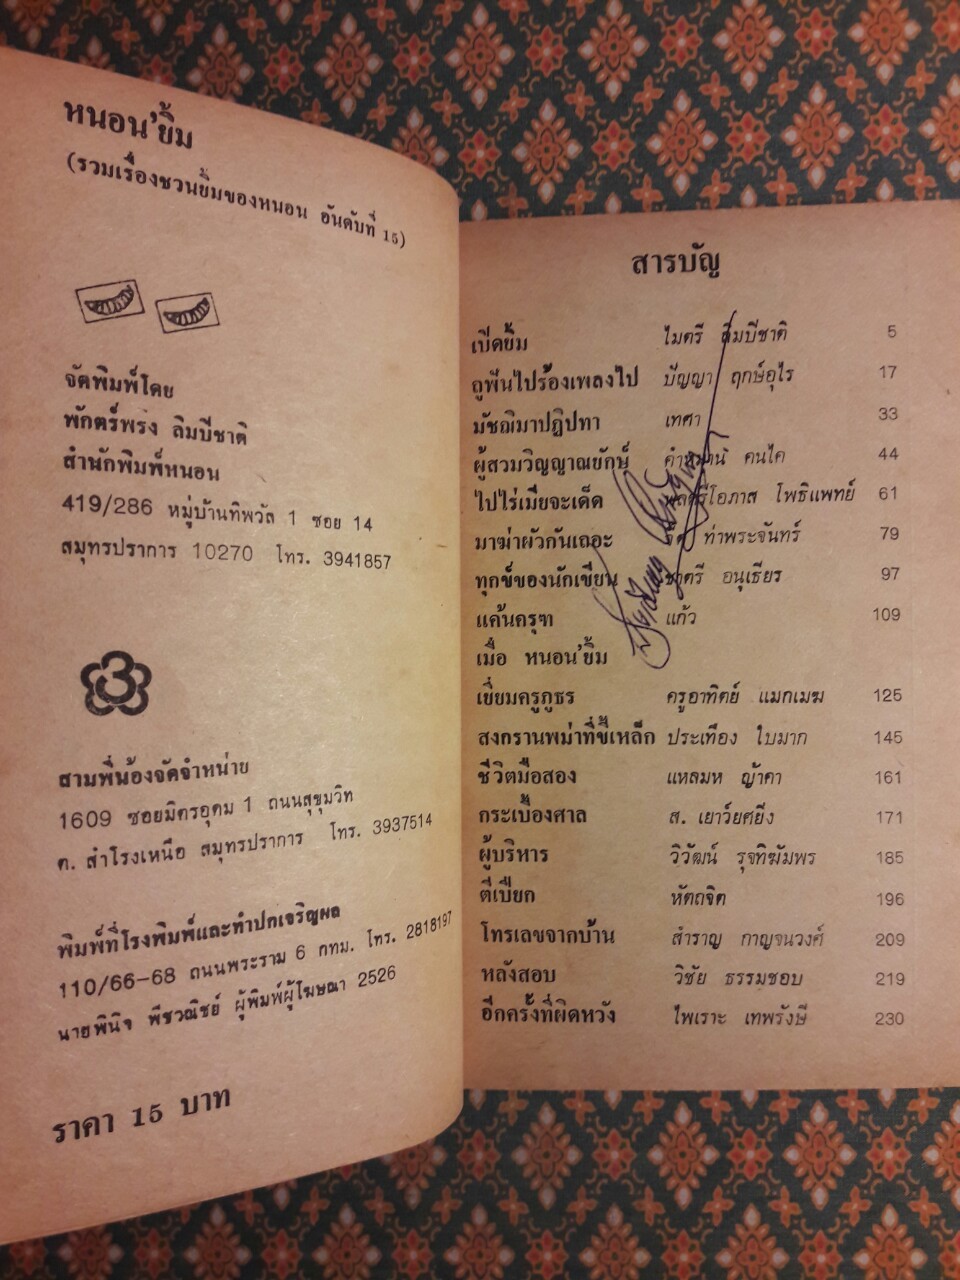 หนอน'ยิ้ม
(รวมเรื่องชวนยิ้มของหนอน อันดับที่ 15)
จัดพิมพ์โดย
พักตร์พริ้ง ลิมปิชาติ
สำนักพิมพ์หนอน
419/286 หมู่บ้านทิพวัล 1 ซอย 14
สมุทรปราการ 10270 โทร. 3941857
สามพี่น้องจัดจำหน่าย
1609 ซอยมิตรอุดม 1 ถนนสุขุมวิท
ต. สำโรงเหนือ สมุทรปราการ โทร. 3937514
พิมพ์ที่โรงพิมพ์และทำปกเจริญผล
110/66-68 ถนนพระราม 6 กทม. โทร. 2818197
นายพินิจ พืชวณิชย์ ผู้พิมพ์ผู้โฆษณา 2526
ราคา 15 บาท
สารบัญ
เปิดยิ้ม ไมตรี ลิมปิชาติ 5
ถูฟันไปร้องเพลงไป ปัญญา ฤกษ์อุไร 17
มัชฌิมาปฏิปทา เทศา 33
ผู้สวมวิญญาณยักษ์ คำหมาน คนไค 44
ไปไร่เมียจะเด็ด โอภาส โพธิแพทย์ 61
มาฆ่าผัวกันเถอะ ท่าพระจันทร์ 79
ทุกข์ของนักเขียน ชาตรี อนุเธียร 97
แค้นครุฑ แก้ว 109
เมื่อ หนอน'ยิ้ม
เยี่ยมครูภูธร ครูอาทิตย์ แมกเมฆ 125
สงกรานพม่าที่ขี้เหล็ก ประเทือง ใบมาก 145
ชีวิตมือสอง แหลมห ญ้าคา 161
กระเบื้องศาล ส. เยาว์ยศยิ่ง 171
ผู้บริหาร วิวัฒน์ รุจทิฆัมพร 185
ตีเปียก หัตถจิต 196
โทรเลขจากบ้าน สำราญ กาญจนวงศ์ 209
หลังสอบ วิชัย ธรรมชอบ 219
อีกครั้งที่ผิดหวัง ไพเราะ เทพรังษี 230